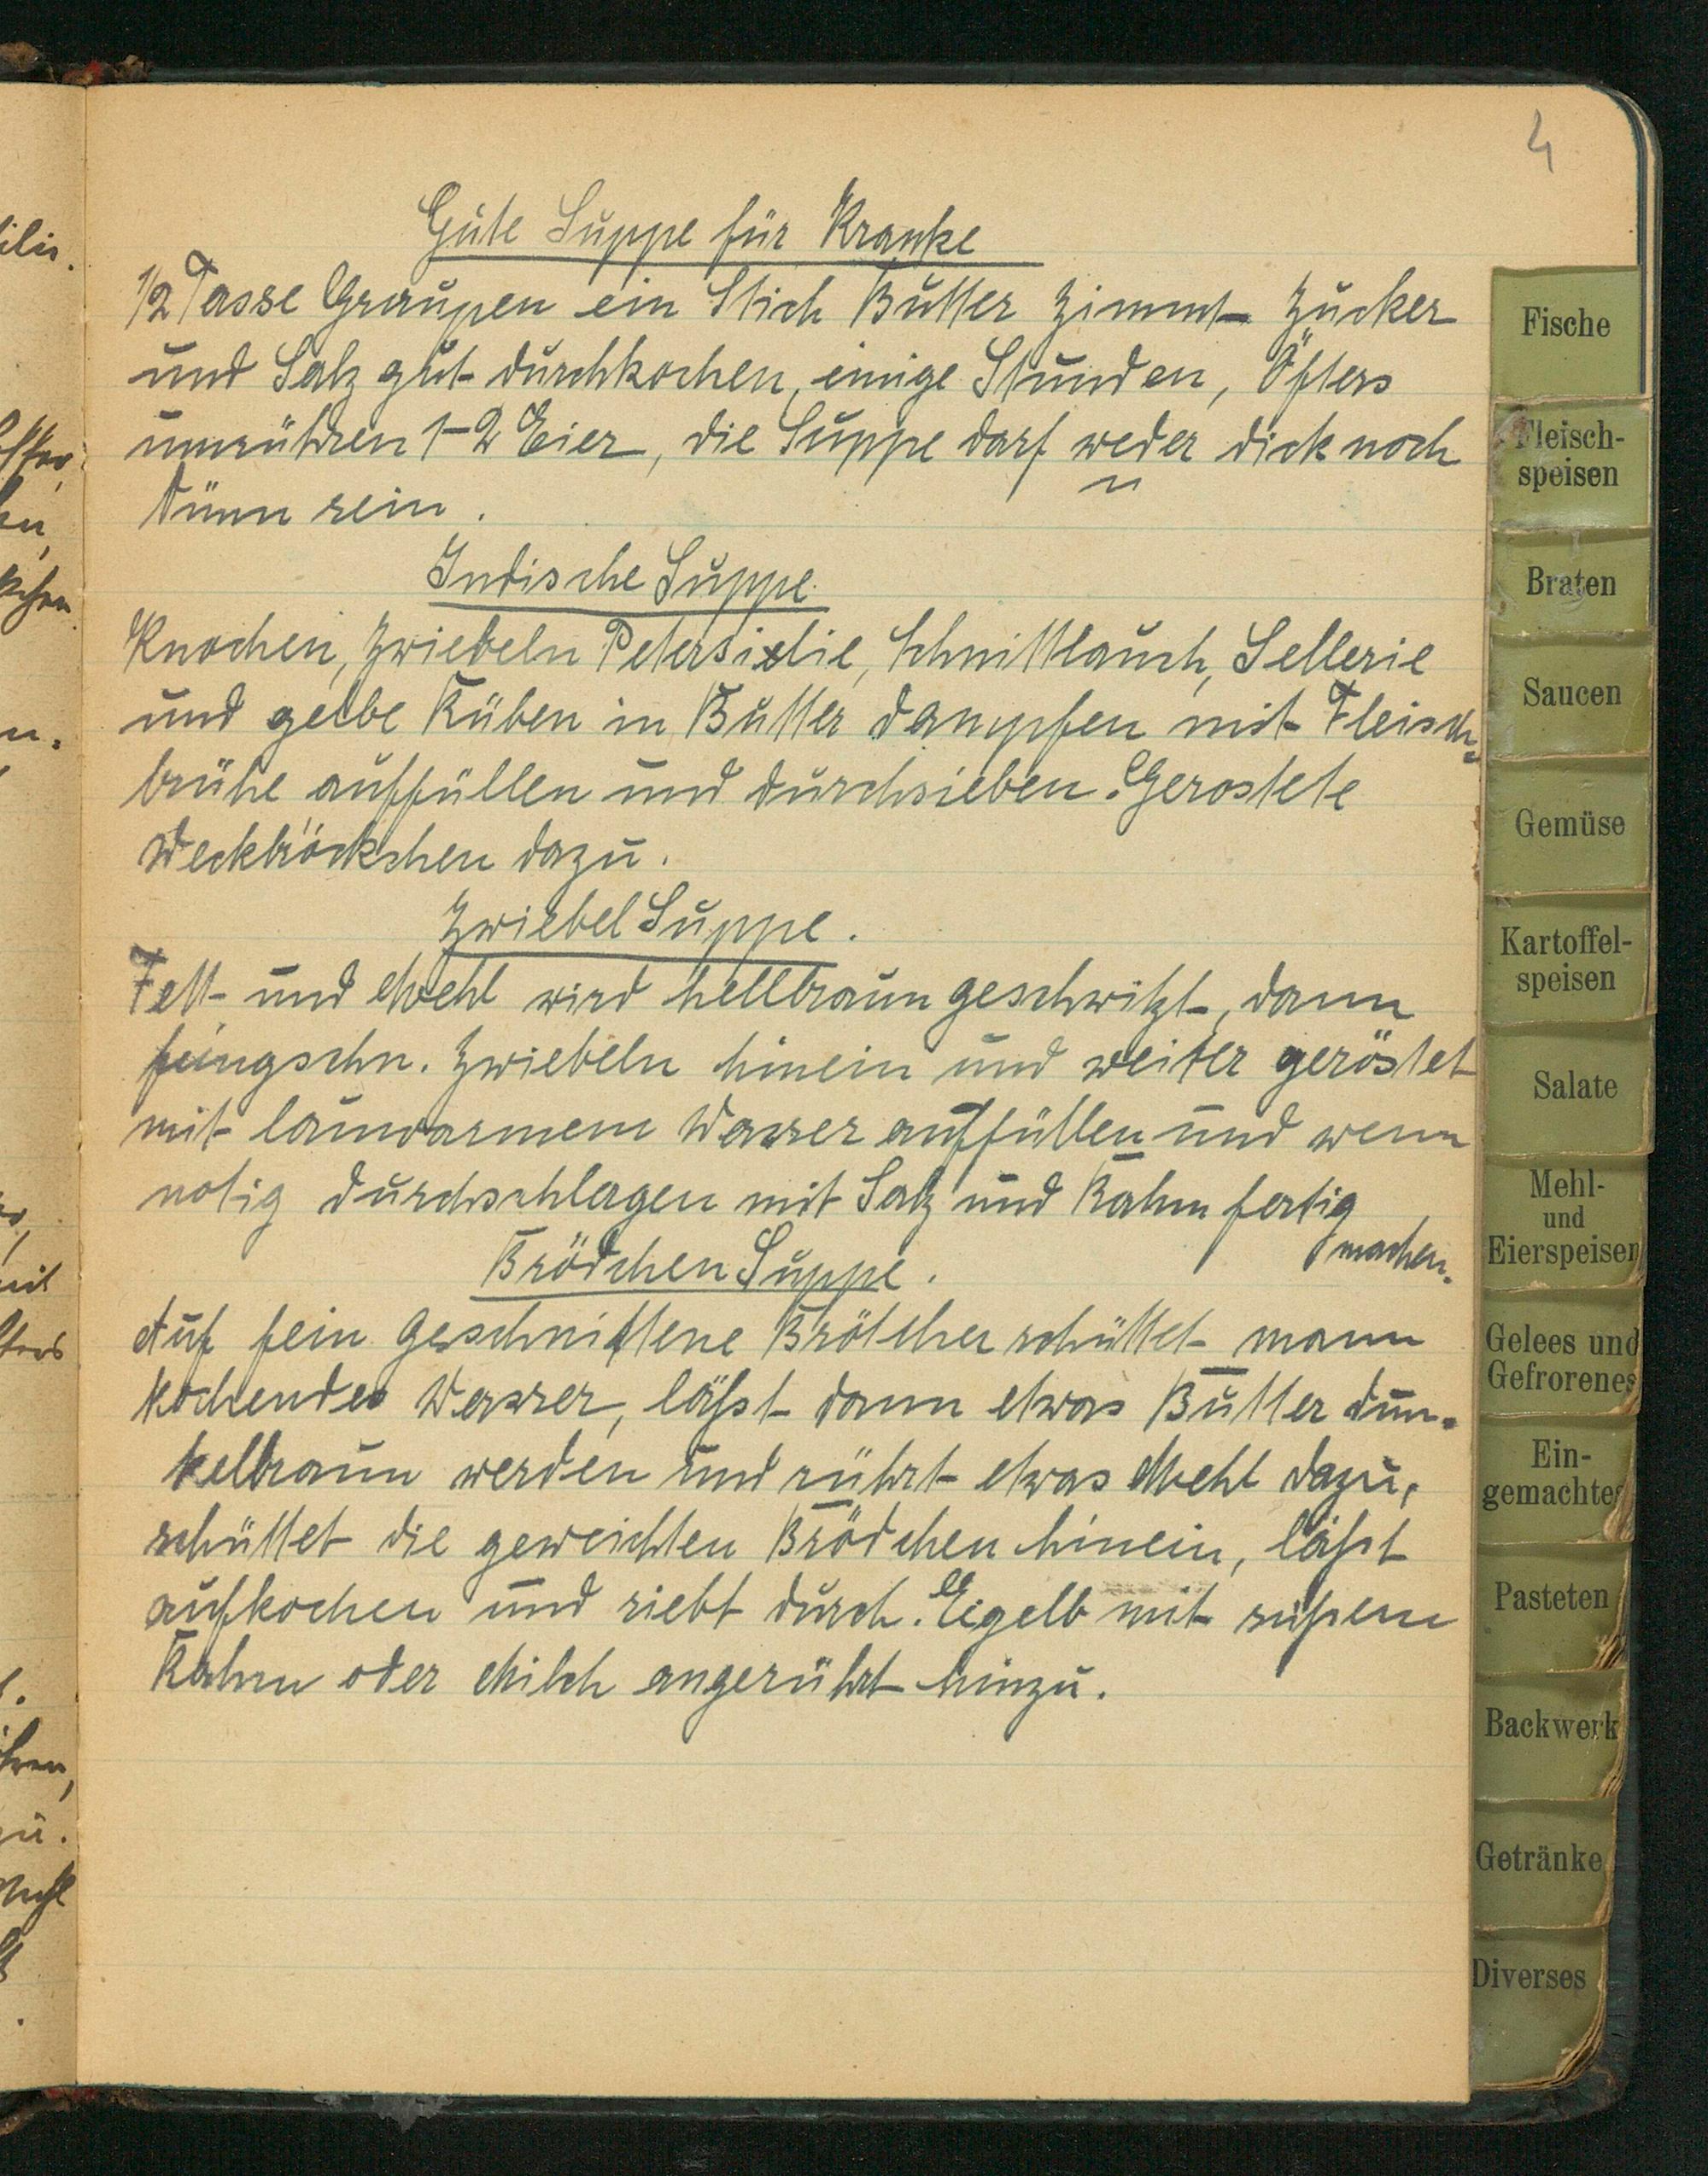 4
Gute Suppe für Kranke
1/2 Tasse Graupen ein Stich Butter Zimmt Zucker
und Salz gut durchkochen, einige Stunden, Öfters
umrühren 1-2 Eier, die Suppe darf weder dick noch
dünn sein.
Indische Suppe
Knochen, Zwiebeln Petersilie, Schnittlauch, Sellerie
und gelbe Rüben in Butter dampfen mit Fleisch=
brühe auffüllen und durchsieben. Gerostete
Weckbröckchen dazu.
Zwiebel Suppe.
Fett und Mehl wird hellbraun geschwitzt, dann
feingschn. Zwiebeln hinein und weiter geröstet
mit lauwarmem Wasser auffüllen und wenn
notig durchschlagen mit Salz und Rahm fertig
machen.
Brödchen Suppe.
Auf fein geschnittene Brötchen schüttet mann
kochendes Wasser, läßt dann etwas Butter dun=
kelbraun werden und rührt etwas Mehl dazu,
schüttet die geweichten Brödchen hinein, läßt
aufkochen und siebt durch. Eigelb mit süßem
Rahm oder Milch angerührt hinzu.
Fische
Fleisch-
speisen
Braten
Saucen
Gemüse
Kartoffel-
speisen
Salate
Mehl-
und
Eierspeisen
Gelees und
Gefrorenes
Ein-
gemachtes
Pasteten
Backwerk
Getränke
Diverses